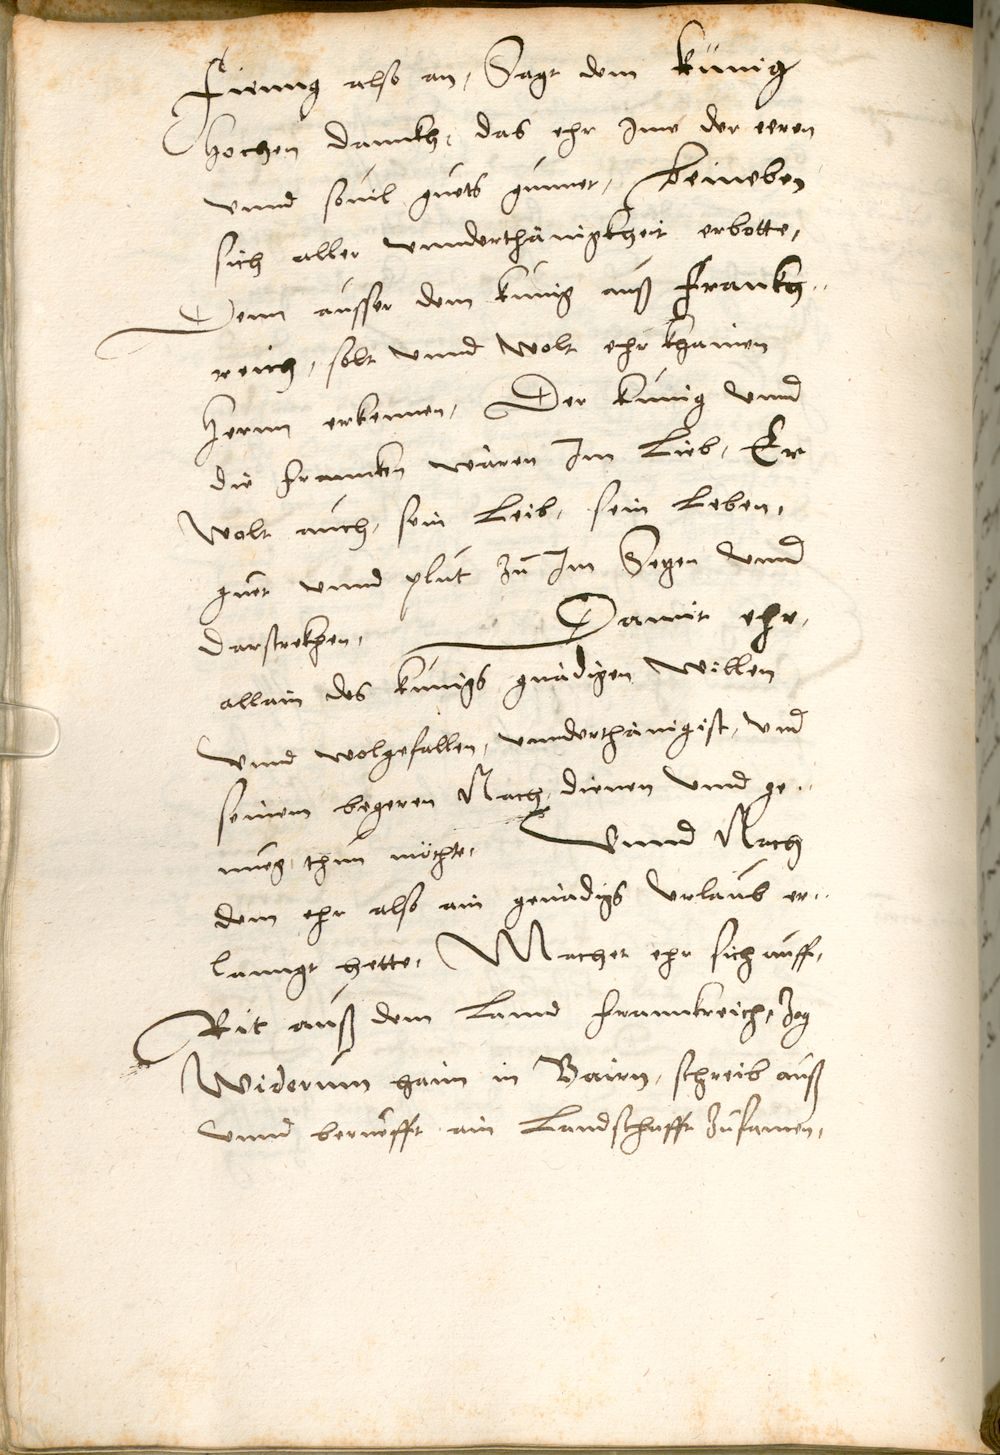 Fieng also an, Sagt dem künig
hochen dannkh, das ehr Ime der eeren
unnd sovil guets gunnet, beineben
sich aller unnderthänigkheit erbotte,
Denn ausser dem künig auß Frankh..
reich, solt unnd wolt ehr khainen
Herrnn erkennen, Der künig unnd
die Francken wären Im Lieb, Er
wolt auch, sein Leib, sein Leben,
guet unnd pluet zu Im Setzen unnd
darstrekhen, Damit ehr,
allain des künigs gnädigen willen
unnd wolgefallen, unnderthänigist, und
seinem begeren Nach, dienen unnd ge..
nueg thun möchte, Unnd Nach
dem ehr also ain genädigs verlaub er..
lanngt hette, Machet ehr sich auff,
Rit auß dem Lannd Frannkreich, Zog
Widerumb haim in Bairn, schreib auß
unnd berueffet ain Landschafft zusamen,